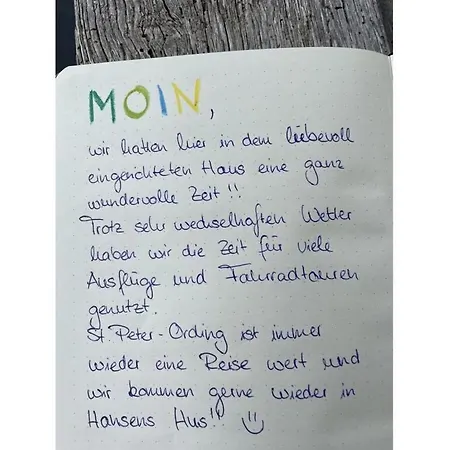 MOIN,
wir hatten hier in dem liebevoll
eingerichteten Haus eine ganz
wundervolle Zeit!!
Trotz sehr wechselhaften Wetter
haben wir die Zeit für viele
Ausflüge und Fahrradtouren
genutzt.
St. Peter-Ording ist immer
wieder eine Reise wert und
wir kommen gerne wieder in
Hansens Hus!! :)